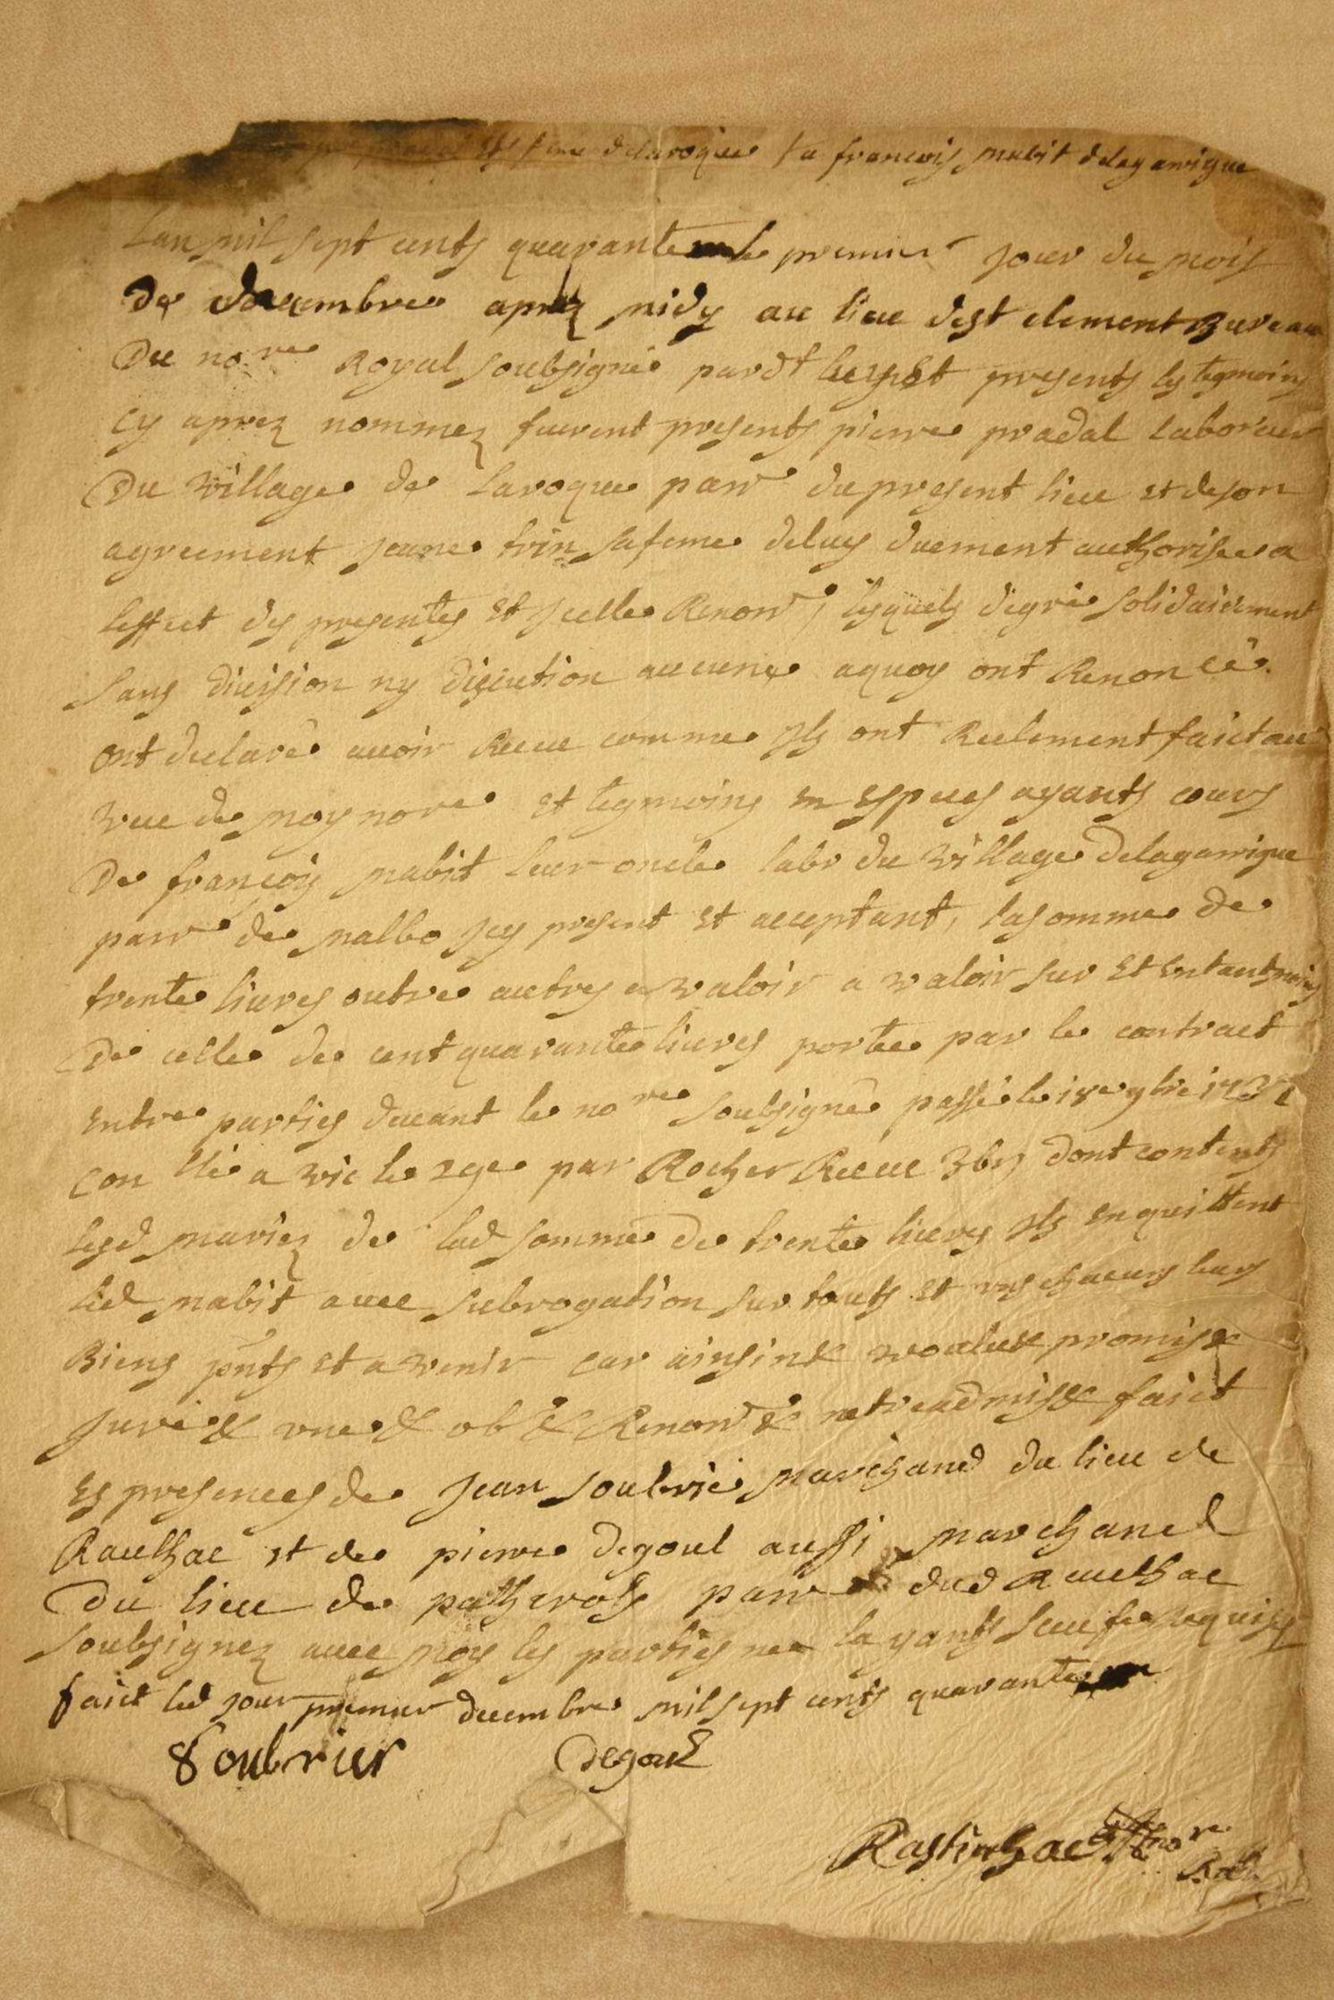 pradal et sa feme delaroque / a francois mabit delagarrigue
Lan mil sept cents quarante le premier jour du mois
de decembre aprez midy au lieu de st clement Bureau
Du no.re Royal soubsigné pardt presents les tesmoins
cy aprez nommez furent presents pierre pradal laboureur
Du village de Laroque parr^e du present lieu et de son
agreement jeane trin sa feme deluy duement authorisee a
leffect des presentes et jcelle Renon^t, lesquels degré solidairement
sans division ny discution aucune aquoy ont Renoncé.
ont declaré avoir Receu comme jls ont Reelement faict au
veue de moy nore et tesmoins en especes ayants cours
De francois mabit leur oncle labr du village delagarrigue
parr^e de malbo jcy present et acceptant, la somme de
trente livres outre autres a valoir a valoir sur et entantmoins
De celle de cent quarante livres portee par le contract
entre parties devant le no^re soubsigné passé le 18e 9bre 1737
con^llé a vic le 29e par Rocher Receu dont contents
lesd mariez de lad somme de trente livres jls en quittent
led mabit avec subrogation sur touts et uns chacuns leurs
Biens pnts et a venir car ainsin & voulu & promis &
juré & une & ob & Renon^t & faict
Es presences de jean soubrié marchand du lieu de
Raulhac et de pierre degoul aussi marchand
Du lieu de patherols parr^e dud Raulhac
soubsignez avec moy les parties ne layants sceu fe requises
faict led jour premier decembre mil sept cents quarante
Soubrier degoul
Rastinhac nore